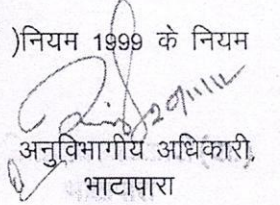 )नियम 1999 के नियम
20/11/12
अनुविभागीय अधिकारी,
भाटापारा